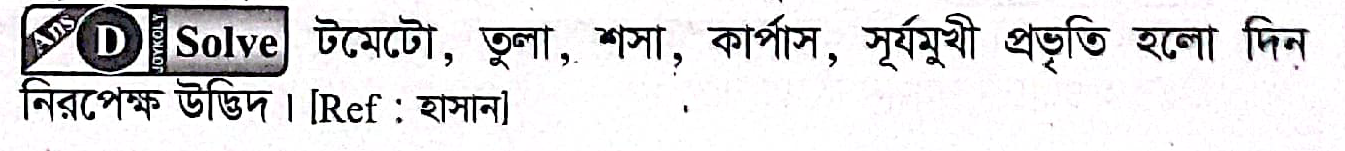 Ans D JOYKOLY Solve টমেটো, তুলা, শসা, কার্পাস, সূর্যমুখী প্রভৃতি হলো দিন
নিরপেক্ষ উদ্ভিদ। [Ref : হাসান]